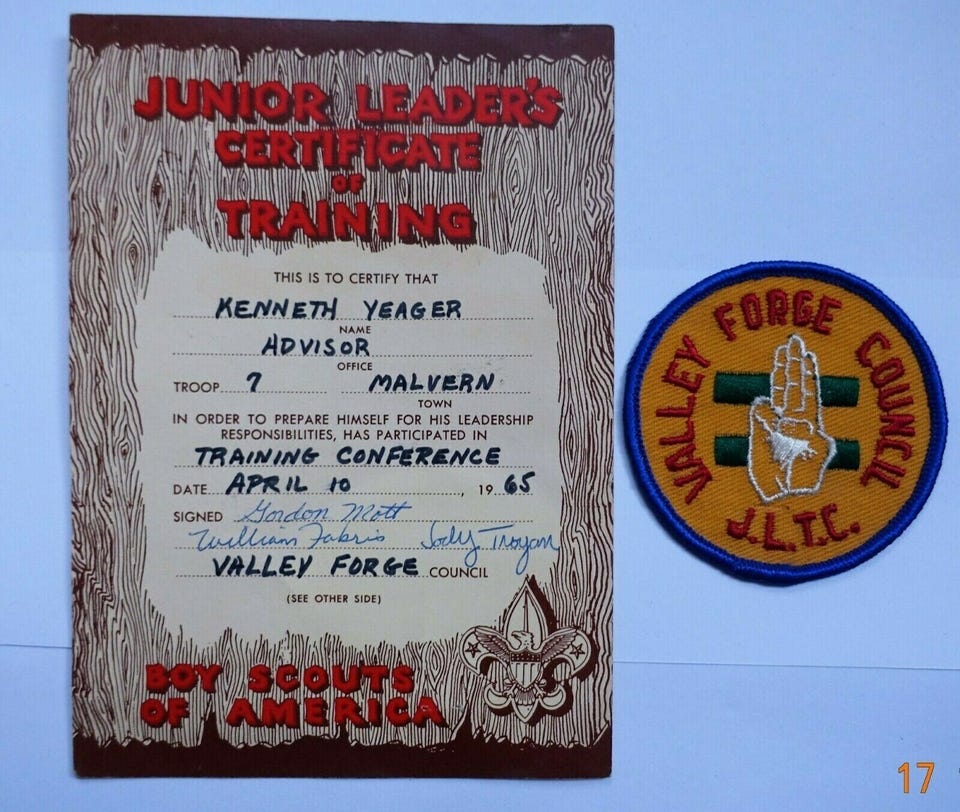 JUNIOR LEADER'S
CERTIFICATE
OF
TRAINING
THIS IS TO CERTIFY THAT
KENNETH YEAGER
NAME
ADVISOR
OFFICE
TROOP 7 MALVERN
TOWN
IN ORDER TO PREPARE HIMSELF FOR HIS LEADERSHIP
RESPONSIBILITIES, HAS PARTICIPATED IN
TRAINING CONFERENCE
DATE APRIL 10, 1965
SIGNED Gordon Mott
William Fabris Jody Troyan
VALLEY FORGE COUNCIL
(SEE OTHER SIDE)
BOY SCOUTS
OF AMERICA
VALLEY FORGE COUNCIL
J.L.T.C.
17